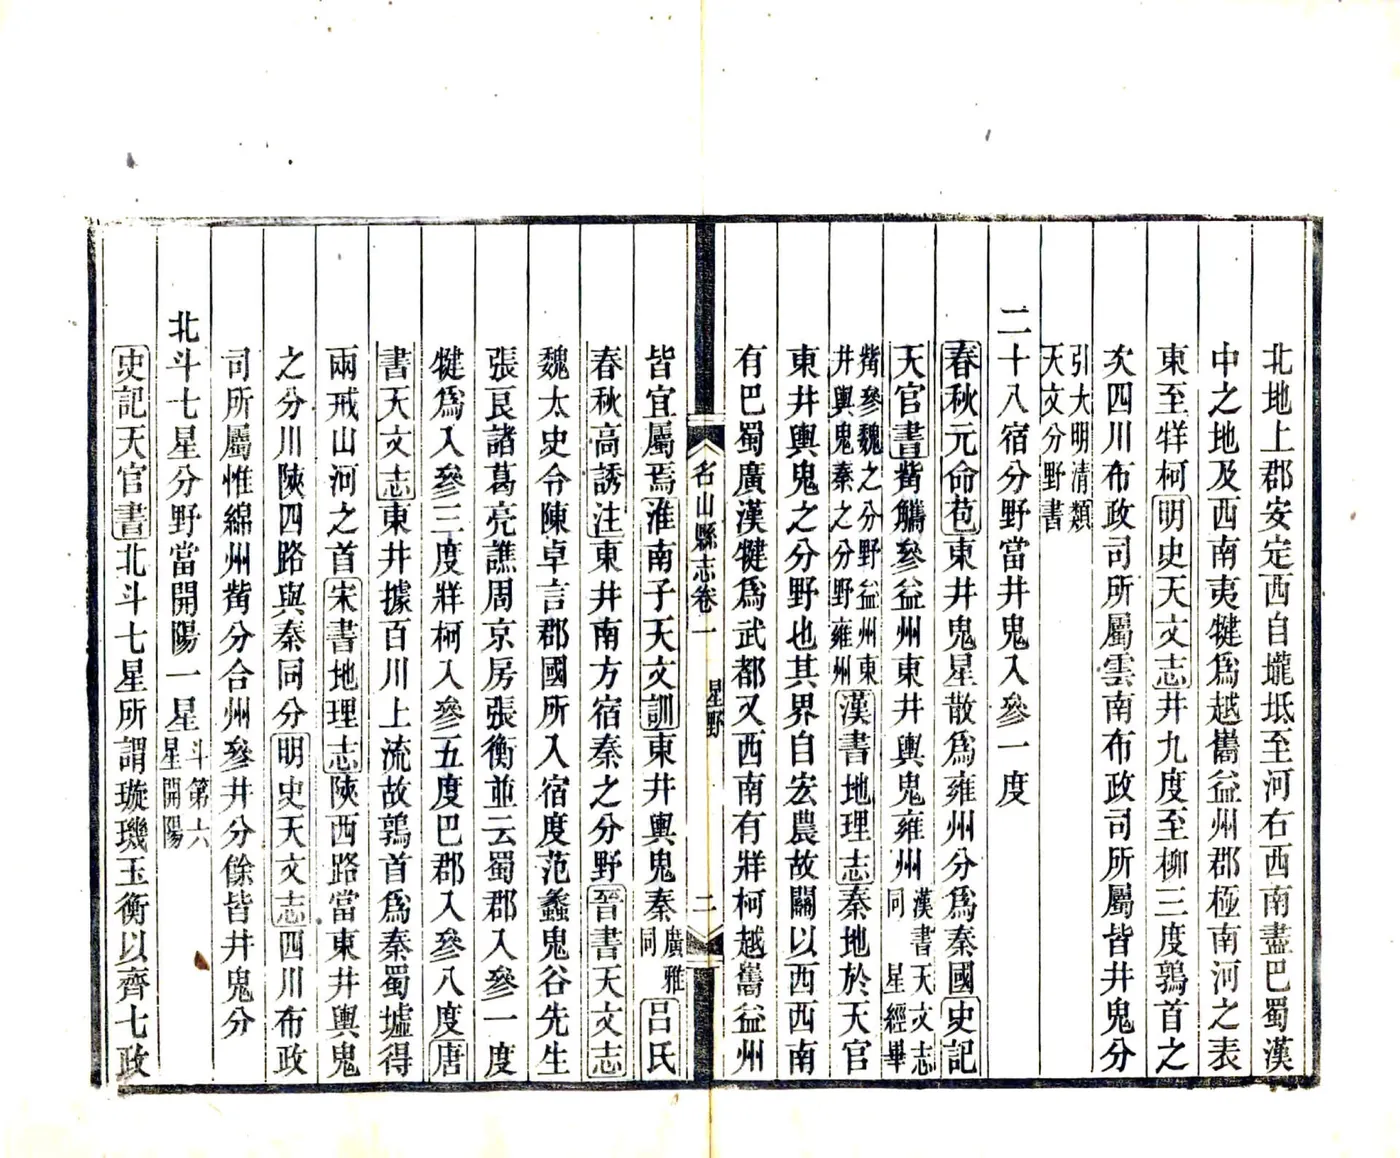 北地上郡安定西自壠坻至河右西南盡巴蜀漢
中之地及西南夷犍爲越嶲益州郡極南河之表
東至牂柯明史天文志井九度至柳三度鶉首之
次四川布政司所屬雲南布政司所屬皆井鬼分
引大明清類
天文分野書
二十八宿分野當井鬼入參一度
春秋元命苞東井鬼星散爲雍州分爲秦國史記
天官書觜觿參益州東井輿鬼雍州漢書天文志同星經畢
觜參魏之分野益州東
井輿鬼秦之分野雍州漢書地理志秦地於天官
東井輿鬼之分野也其界自宏農故關以西西南
有巴蜀廣漢犍爲武都又西南有牂柯越嶲益州
名山縣志卷一
星野
二
皆宜屬焉淮南子天文訓東井輿鬼秦廣雅同呂氏
春秋高誘注東井南方宿秦之分野晉書天文志
魏太史令陳卓言郡國所入宿度范蠡鬼谷先生
張良諸葛亮譙周京房張衡並云蜀郡入參一度
犍爲入參三度牂柯入參五度巴郡入參八度唐
書天文志東井據百川上流故鶉首爲秦蜀墟得
兩戒山河之首宋書地理志陝西路當東井輿鬼
之分川陝四路與秦同分明史天文志四川布政
司所屬惟綿州觜分合州參井分餘皆井鬼分
北斗七星分野當開陽一星斗第六星開陽
史記天官書北斗七星所謂璇璣玉衡以齊七政